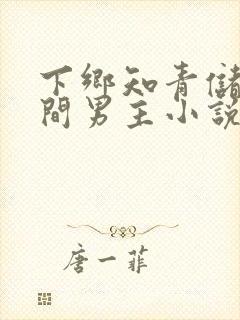 下鄉知青儲
間男主小說
唐一菲